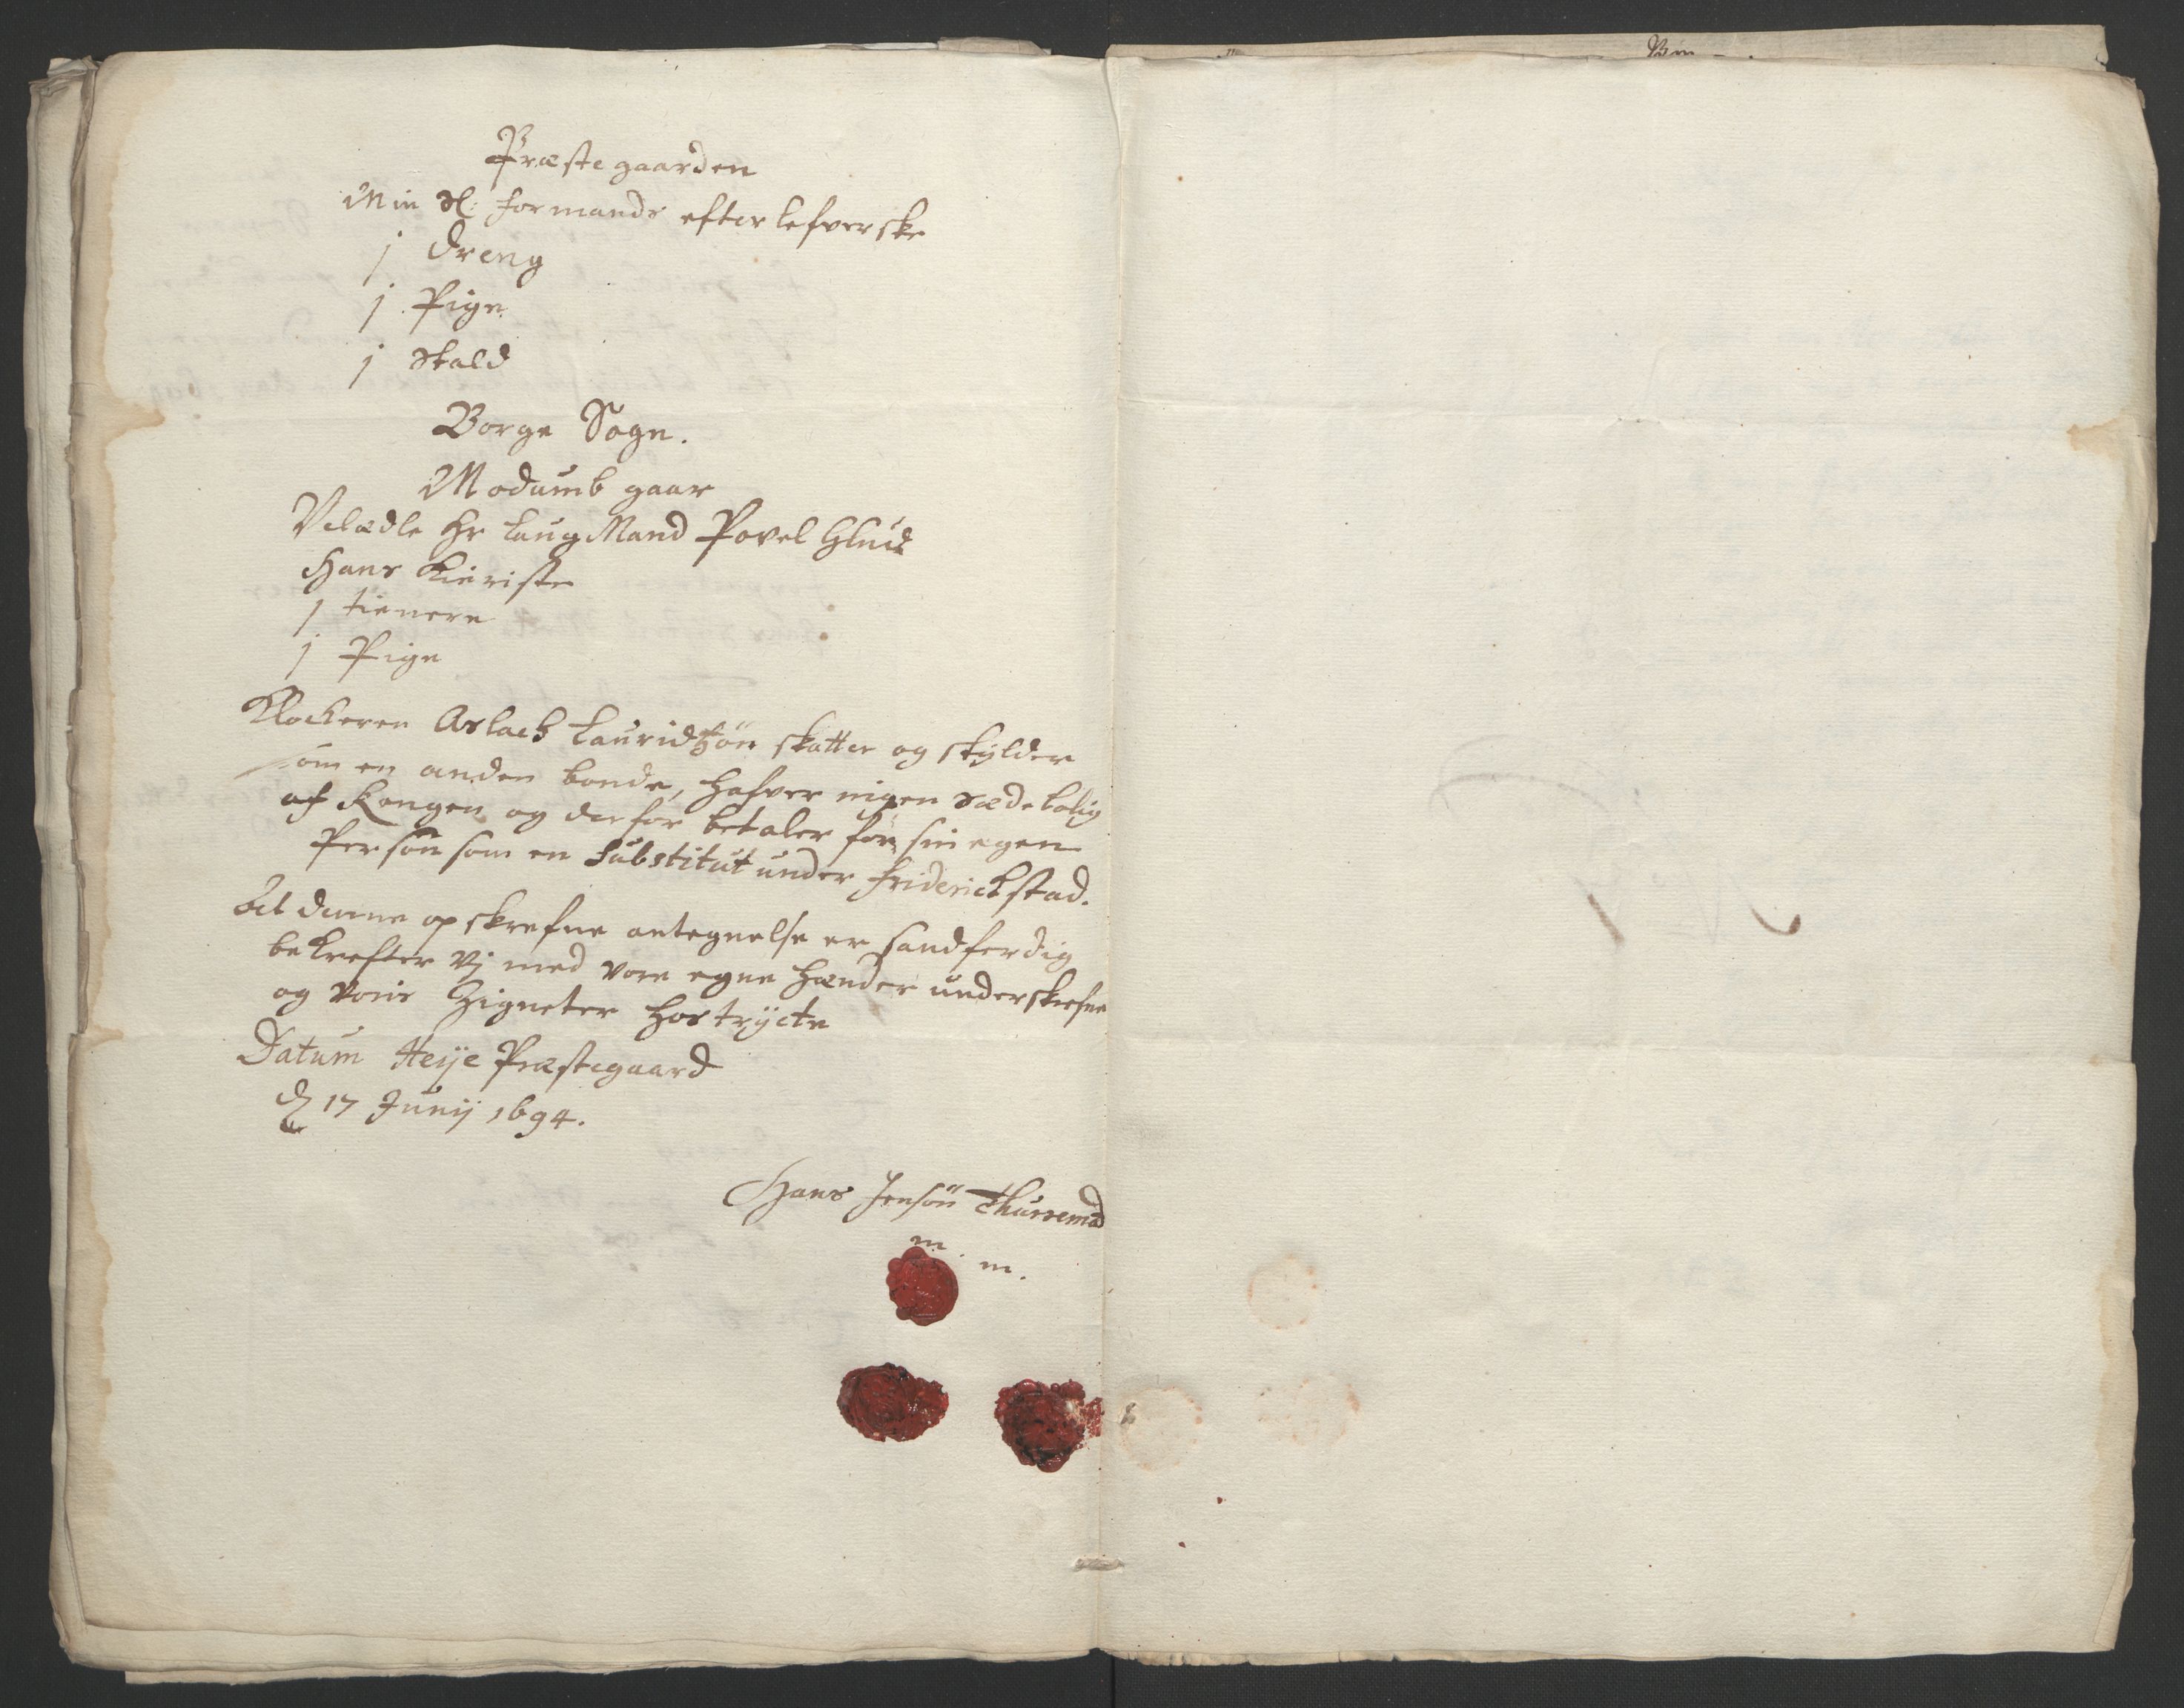 Præstegaarden
Min Sl: formands efterlefverske
1 dreng
1 Pige
1 Stald
Borge Sogn.
Modumb gaar
Velædle Hr LaugMand Povel Glud
Hans Kieriste
1 tienere
1 Pige
Klockeren Aslack Lauridtzøn skatter og skylder
som en anden bonde, hafver ingen sædebolig
af Kongen og derfor betaler for sin egen
Person som en Substitut under Friderickstad.
At denne opskrefne antegnelse er sandferdig
bekrefter vj med vore egne hænder underskrefne
og voris Zigneter hostrÿcte
Datum Herje Præstegaard
d 17 Junij 1694.
Hans Jensøn
m m.